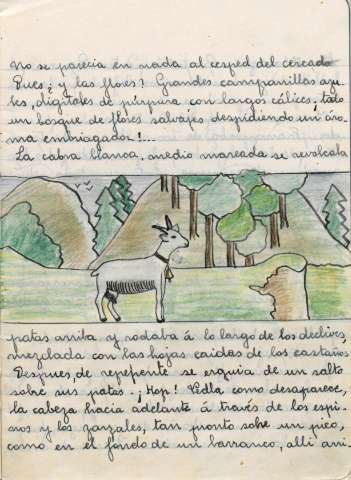 No se parecia en nada al cesped del cercado
Pues ¿y las flores? Grandes campanillas azu-
les, digitales de púrpura con largos cálices, todo
un bosque de flores salvajes despidiendo un aro-
ma embriagador!...
La cabra blanca, medio mareada se revolcaba
patas arriba y rodaba á lo largo de los declives,
mezclada con las hojas caidas de los castaños
Despues, de repepente se erguia de un salto
sobre sus patas. ¡Hop! Vedla como desaparece,
la cabeza hacia adelante á través de los espi-
nos y los zarzales, tan pronto sobre un pico,
como en el fondo de un barranco, alli arri-